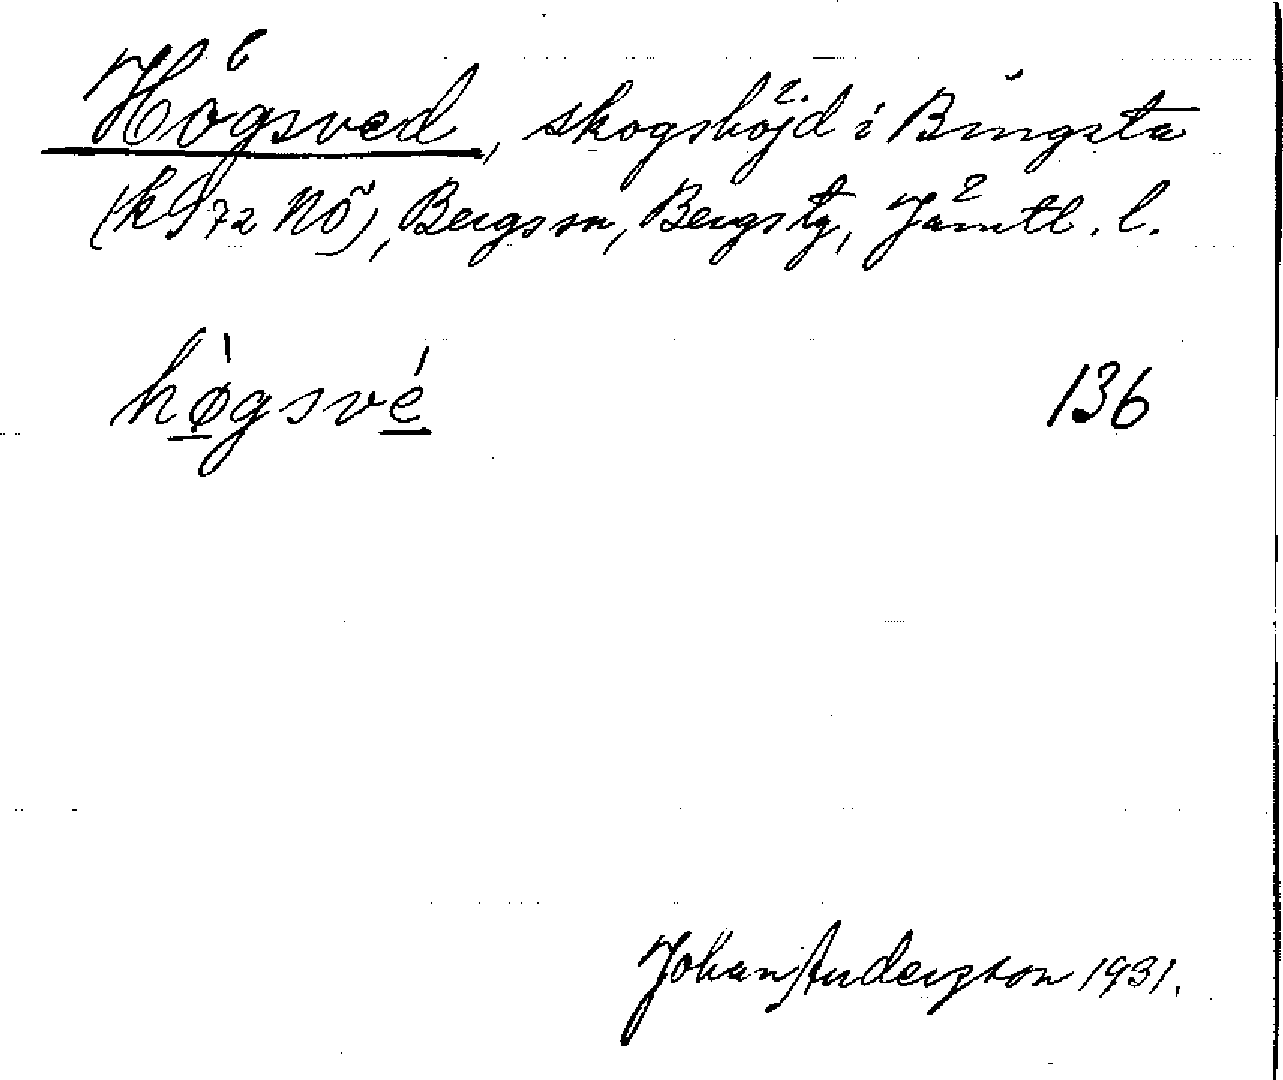 Högsved, skogshöjd i Bingsta
(k 972 NÖ), Bergs sn, Bergs tg, Jämtl. l.
hø̀gsvé
136
Johan Anderzson 1931.